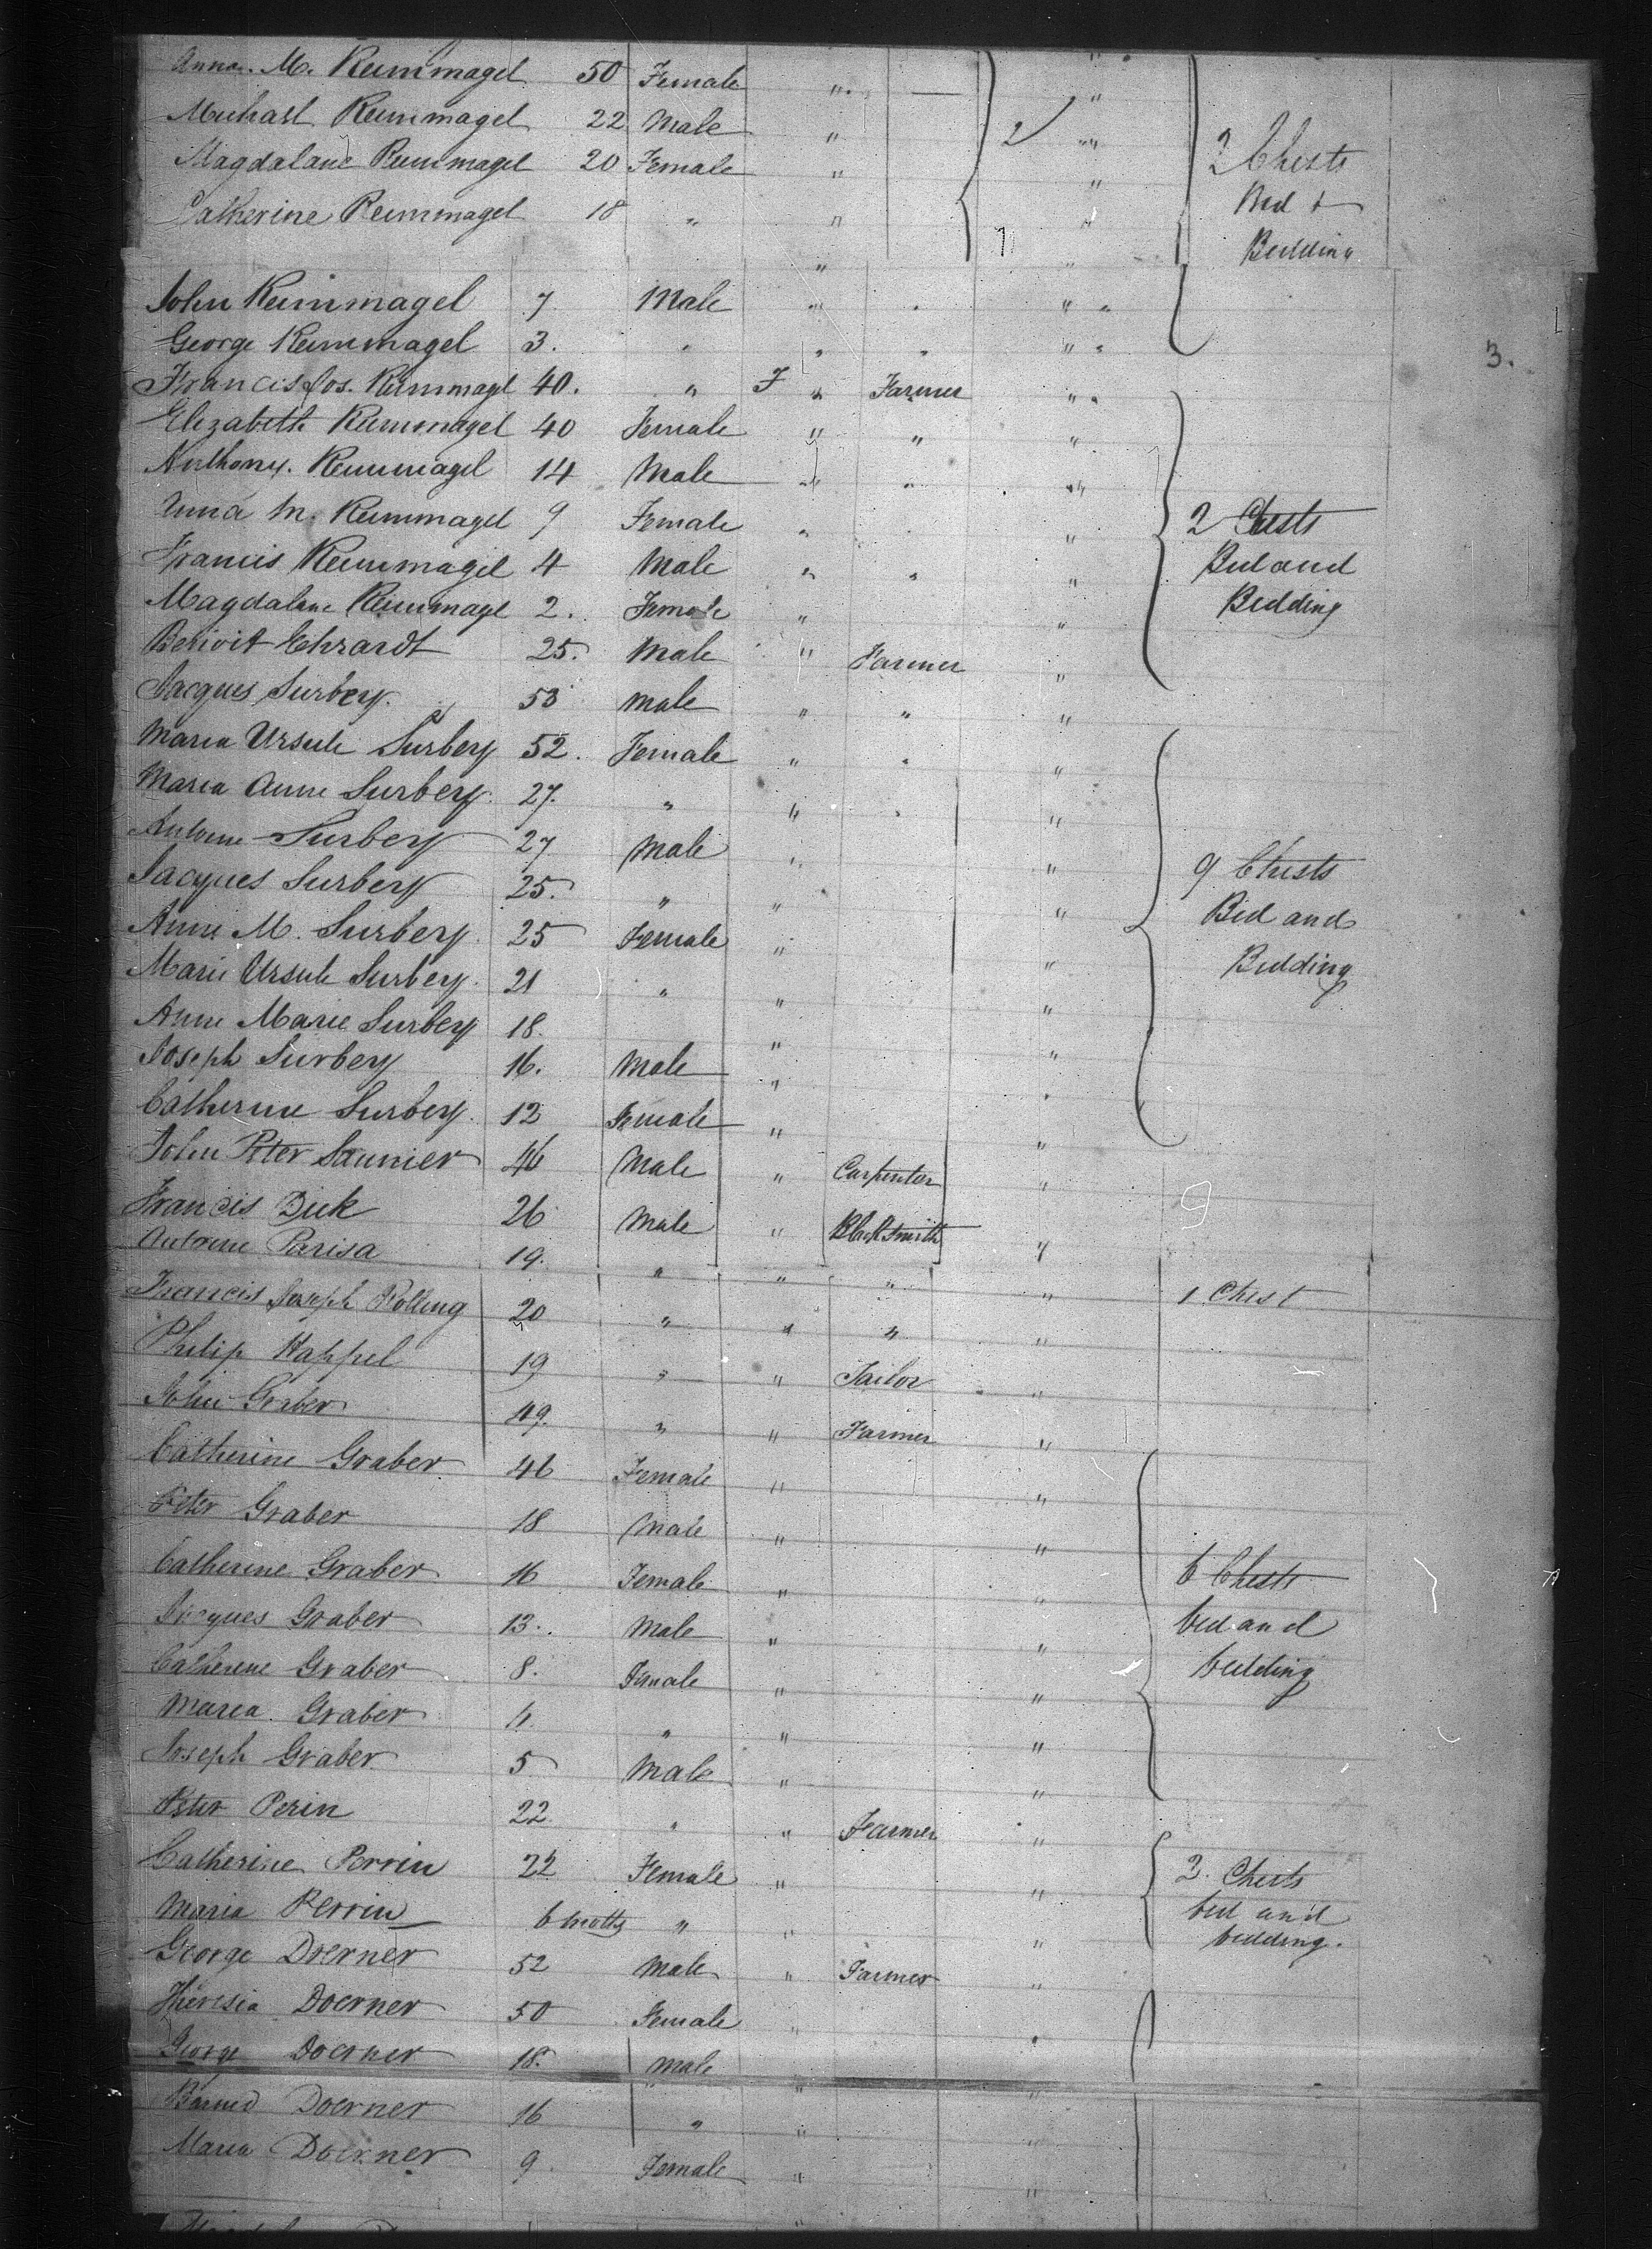 Anna. M. Reimmagel 50 Female " — "
Michael Reimmagel 22 Male " 2 "
Magdalane Reimmagel 20 Female " " 2 Chests
Catherine Reimmagel 18 " " " Bed &
" " Bedding
John Reimmagel 7 Male " " "
George Reimmagel 3. " " " " 3.
Francis Jos. Reimmagel 40. " F " Farmer "
Elizabeth Reimmagel 40 Female " " "
Anthony. Reimmagel 14 Male " " "
Anna M. Reimmagel 9 Female " " 2 Chests
Francis Reimmagel 4 Male " " " Bed and
Magdalane Reimmagel 2. Female " " Bedding
Benoit Ehrardt 25. Male " Farmer "
Jacques Surbery. 53 Male " " "
Maria Ursule Surbery 52. Female " " "
Maria Anne Surbery. 27. " " " "
Antoine Surbery 27 Male " "
Jacques Surbery 25. " " " 9 Chests
Anne M. Surbery. 25 Female " " Bed and
Marie Ursule Surbery. 21 " " " Bedding
Anne Marie Surbery 18. " "
Joseph Surbery 16. Male " "
Catherine Surbery. 12 Female " "
John Peter Saunier 46 Male " Carpenter "
Francis Dick 26 Male " Blacksmith "
Antoine Parisa 19. " " " "
Francis Joseph Rolling 20 " " " " 1 Chest
Philip Happel 19 " " Tailor "
John Graber 49. " " Farmer "
Catherine Graber 46 Female " "
Peter Graber 18 Male " "
Catherine Graber 16 Female " " 6 Chests
Jacques Graber 13. Male " " bed and
Catherine Graber 8. Female " " bedding
Maria Graber 4 " " "
Joseph Graber 5 Male " "
Peter Perin 22 " " Farmer "
Catherine Perrin 22 Female " " 2. Chests
Maria Perrin 6 moths " " " bed and
bedding.
George Doerner 52 Male " Farmer "
Theresia Doerner 50 Female " "
George Doerner 18. Male " "
Doerner 16 " " "
Maria Doerner 9. Female " "